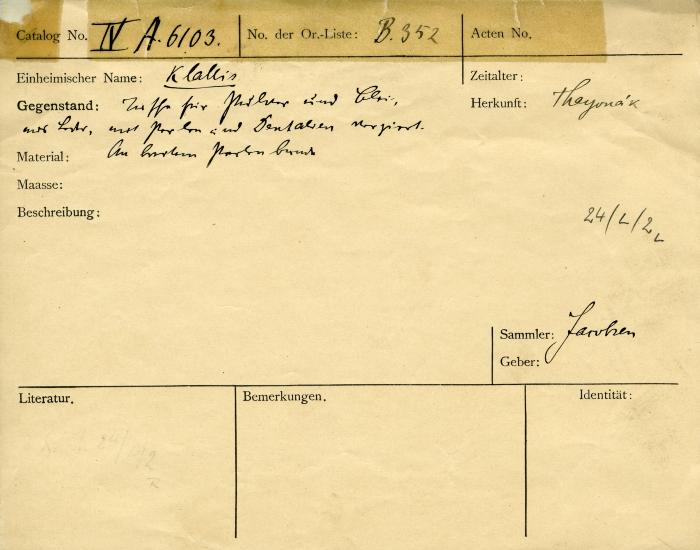 Catalog No. IV A. 6103.
No. der Or.-Liste: B. 352
Acten No.
Einheimischer Name: Klallis
Zeitalter:
Gegenstand: Tasche für Pulver und Blei,
Herkunft: Theyonák
aus Leder, mit Perlen und Dentalien verziert.
Material: An breitem Perlenbande
Maasse:
Beschreibung:
24/L/2
Sammler: Jacobsen
Geber:
Literatur.
Bemerkungen.
Identität: